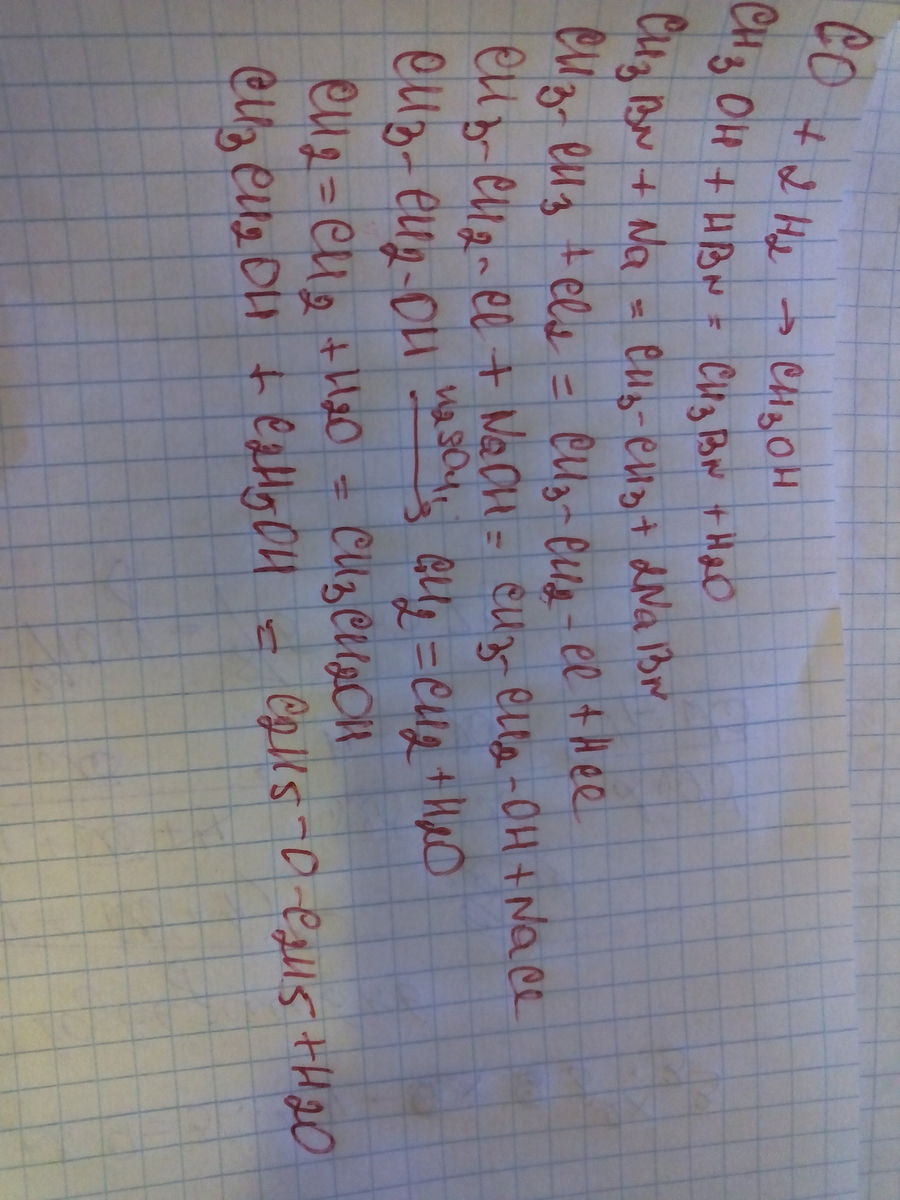 CO + 2H2 → CH3OH
CH3OH + HBr = CH3Br + H2O
CH3Br + Na = CH3-CH3 + 2NaBr
CH3-CH3 + Cl2 = CH3-CH2-Cl + HCl
CH3-CH2-Cl + NaOH = CH3-CH2-OH + NaCl
CH3-CH2-OH H2SO4 → CH2=CH2 + H2O
CH2=CH2 + H2O = CH3CH2OH
CH3CH2OH + C2H5OH = C2H5-O-C2H5 + H2O